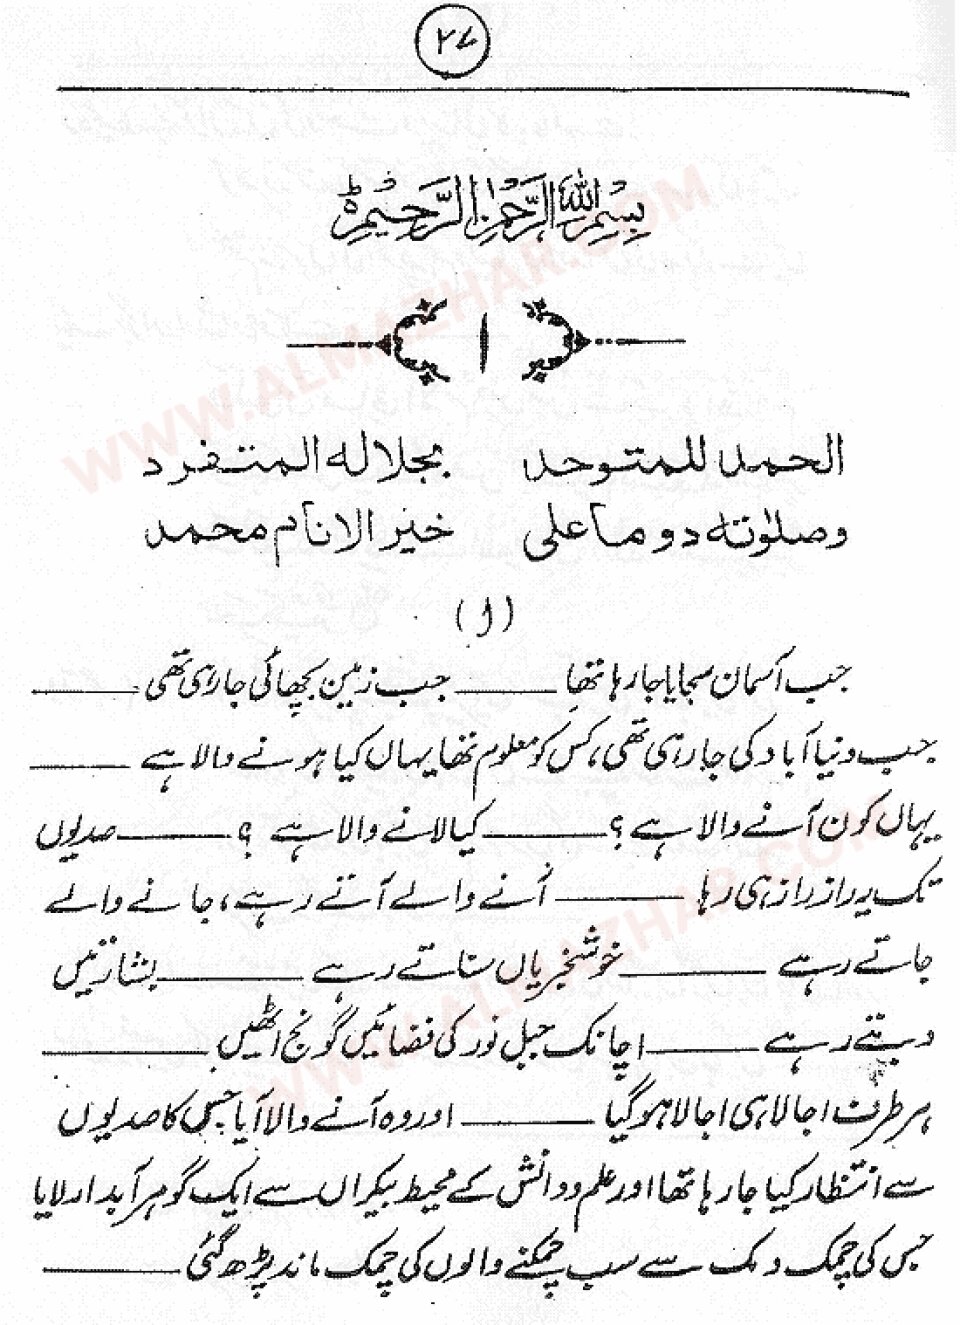 ۲۷
بِسْمِ اللهِ الرَّحْمٰنِ الرَّحِيْمِ ہ
۱
الحمد للمتوحد بجلاله المتفرد
وصلوٰته دوما علی خیر الانام محمد
(۱)
جب آسمان سجایا جا رہا تھا ــــــ جب زمین بچھائی جا رہی تھی ــــــ
جب دنیا آباد کی جا رہی تھی، کس کو معلوم تھا یہاں کیا ہونے والا ہے ــــــ
یہاں کون آنے والا ہے ؟ ــــــ کیا لانے والا ہے ؟ ــــــ صدیوں
تک یہ راز راز ہی رہا ــــــ آنے والے آتے رہے، جانے والے
جاتے رہے ــــــ خوشخبریاں سناتے رہے ــــــ بشارتیں
دیتے رہے ــــــ اچانک جبل نور کی فضائیں گونج اٹھیں ــــــ
ہر طرف اجالا ہی اجالا ہو گیا ــــــ اور وہ آنے والا آیا جس کا صدیوں
سے انتظار کیا جا رہا تھا اور علم و دانش کے محیط بیکراں سے ایک گوہر آبدار لایا
جس کی چمک دمک سے سب چمکنے والوں کی چمک ماند پڑھ گئی ــــــ
WWW.ALMAZHAR.COM
WWW.ALMAZHAR.COM